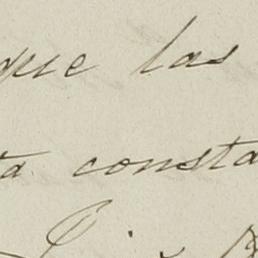 que las
ta consta